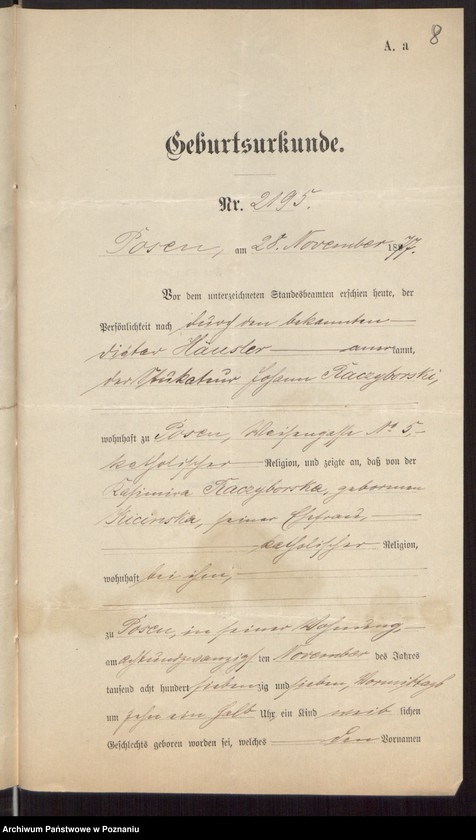 A. a 8
Geburtsurkunde.
Nr. 2195.
Posen, am 28. November 1877.
Vor dem unterzeichneten Standesbeamten erschien heute, der
Persönlichkeit nach durch den bekannten
Häusler anerkannt,
der Stukateur Johann Raczyborski,
wohnhaft zu Posen, Waisengasse No 5,
katholischer Religion, und zeigte an, daß von der
Kasimira Raczyborska, geborenen
Kicinska, seiner Ehefrau,
katholischer Religion,
wohnhaft bei ihm,
zu Posen, in seiner Wohnung,
am achtundzwanzigsten November des Jahres
tausend acht hundert siebenzig und sieben, Vormittags
um zehn ein halb Uhr ein Kind weiblichen
Geschlechts geboren worden sei, welches den Vornamen
Archiwum Państwowe w Poznaniu